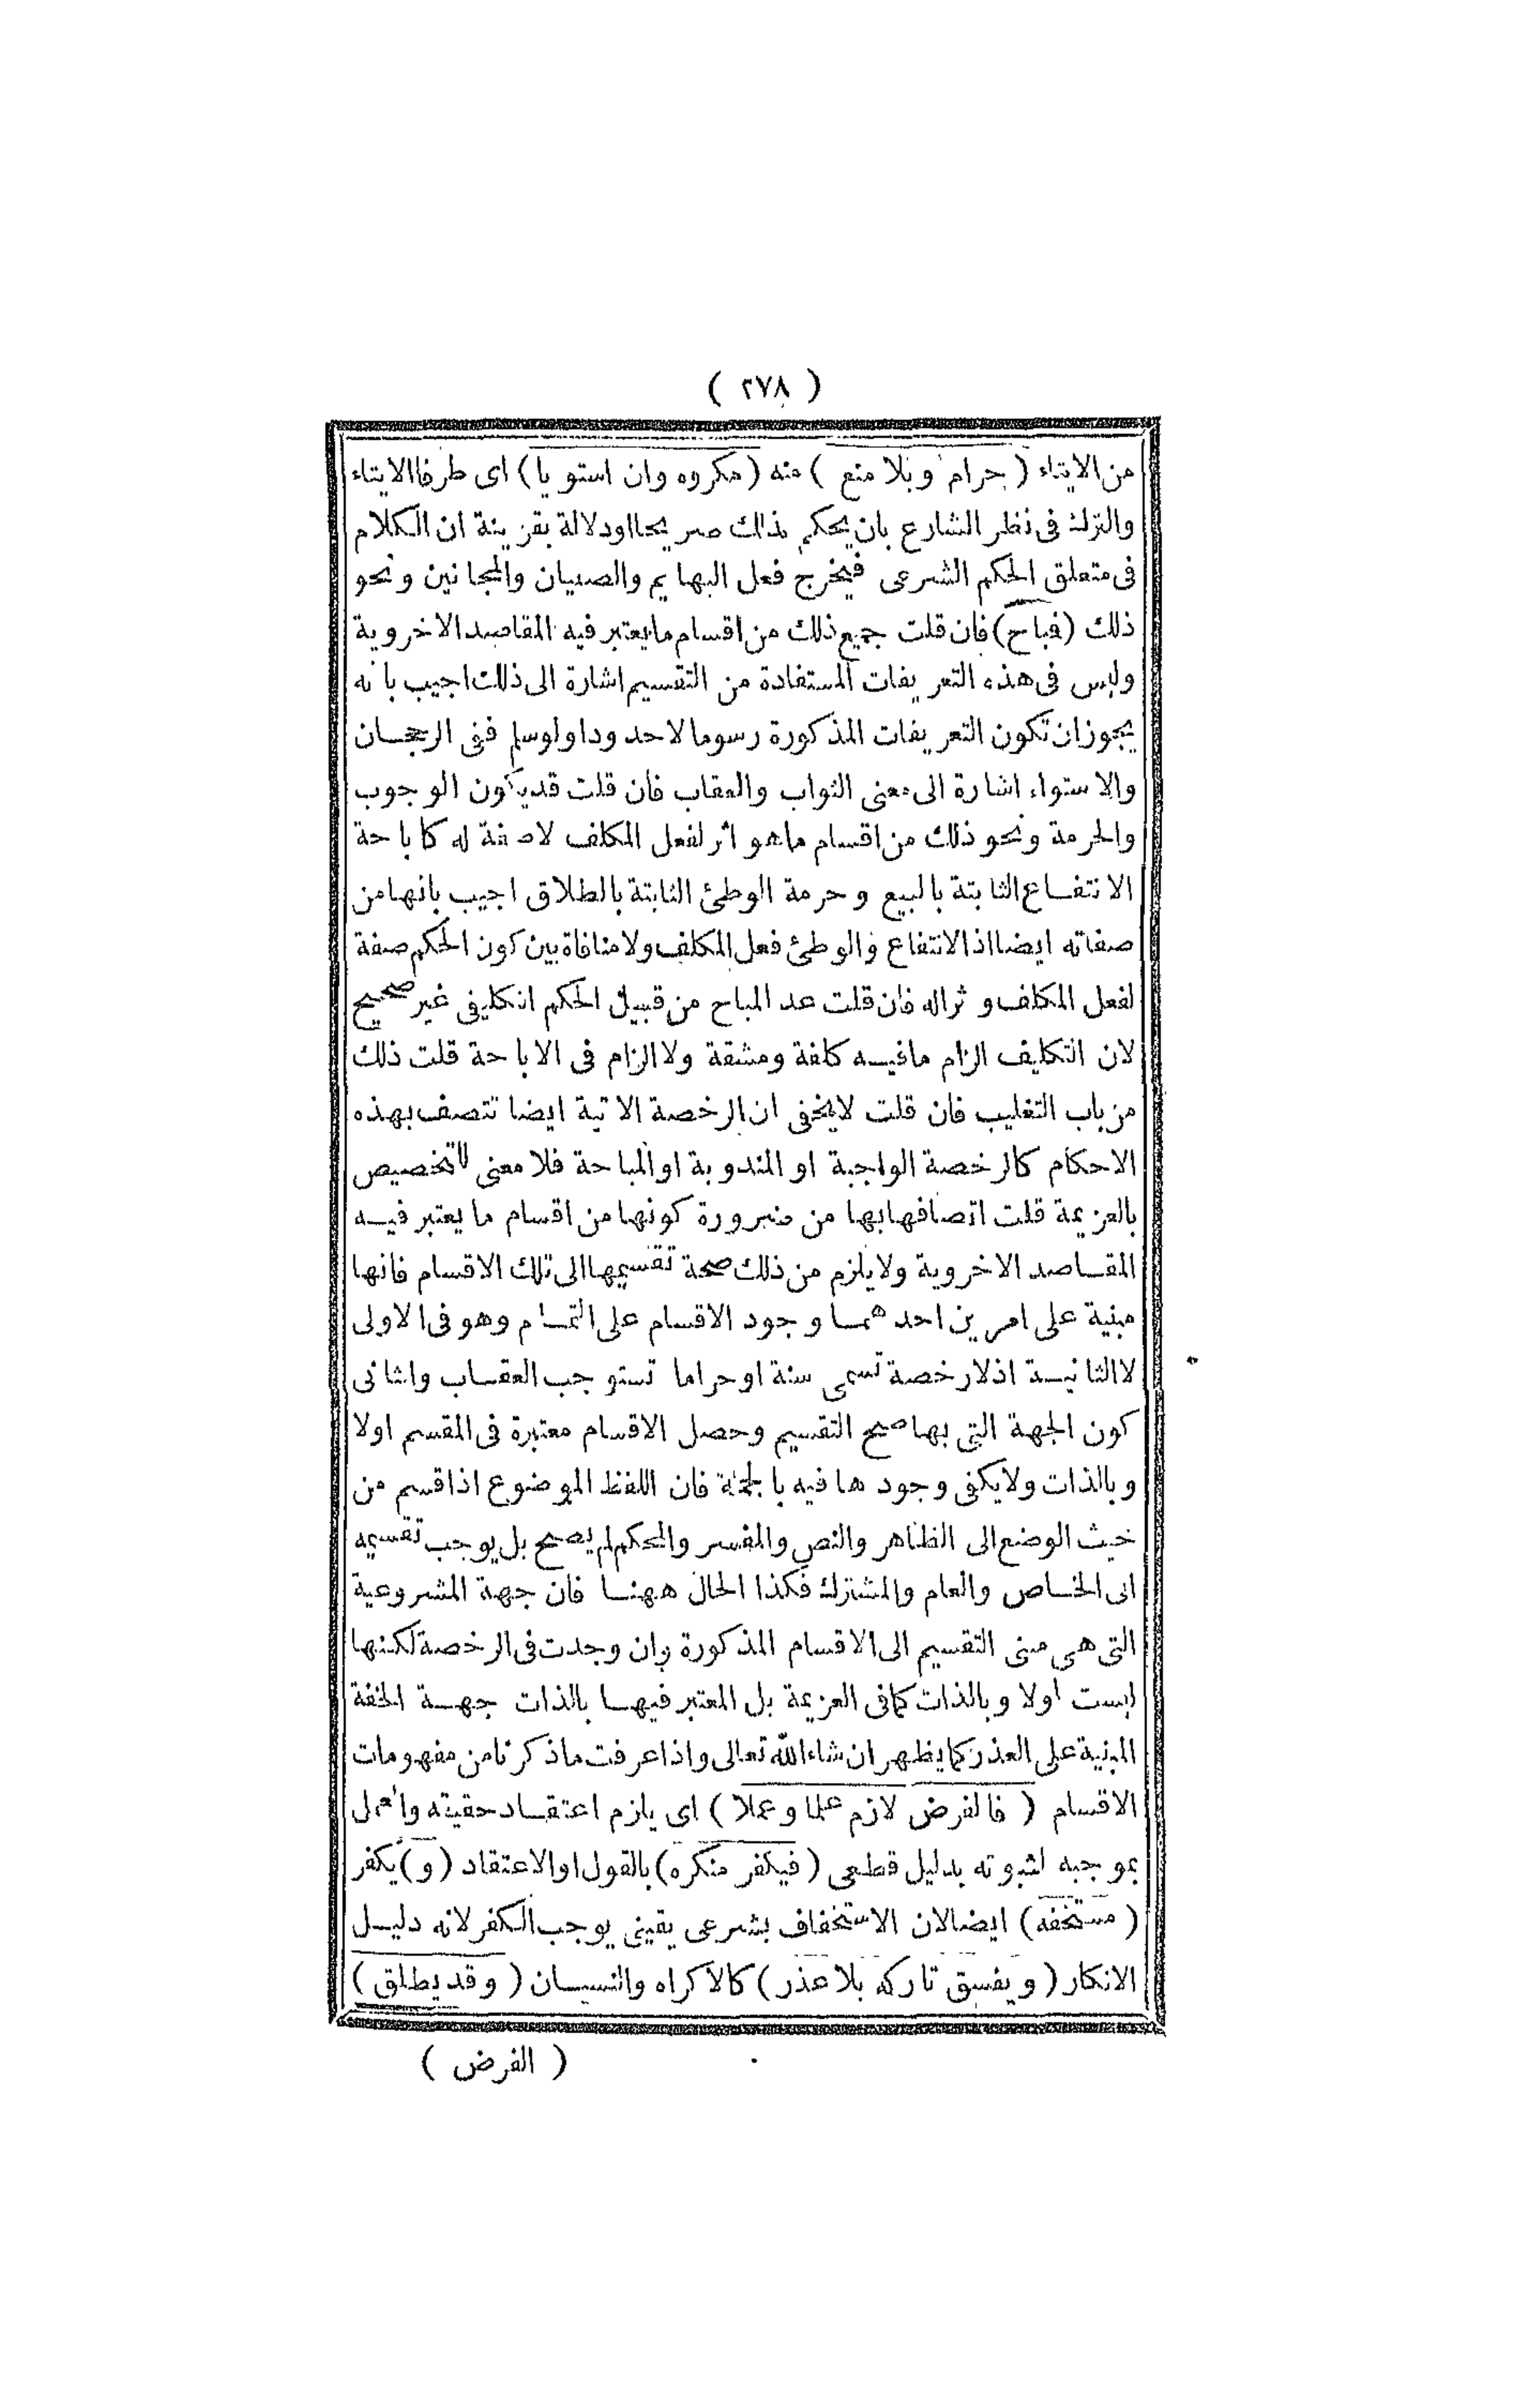 ( ٢٧٨ )
من الايتاء ( حرام وبلا منع ) منه ( مكروه وان استويا ) اى طرفا الايتاء
والترك فى نظر الشارع بان يحكم بذلك صريحا اودلالة بقرينة ان الكلام
فى متعلق الحكم الشرعى فيخرج فعل البهايم والصبيان والمجانين ونحو
ذلك ( فباح ) فان قلت جميع ذلك من اقسام ما يعتبر فيه المقاصد الاخروية
وليس فى هذه التعريفات المستفادة من التقسيم اشارة الى ذلك اجيب بانه
يجوز ان تكون التعريفات المذكورة رسوما لا حدودا ولوسلم ففى الرجحان
والاستواء اشارة الى معنى الثواب والعقاب فان قلت قديكون الوجوب
والحرمة ونحو ذلك من اقسام ما هو اثر لفعل المكلف لا صفة له كاباحة
الانتفاع الثابتة بالبيع وحرمة الوطئ الثابتة بالطلاق اجيب بانها من
صفاته ايضا اذ الانتفاع والوطئ فعل المكلف ولا منافاة بين كون الحكم صفة
لفعل المكلف و ثراله فان قلت عد المباح من قبيل الحكم التكليفى غير صحيح
لان التكليف الزام مافيه كلفة ومشقة ولا الزام فى الاباحة قلت ذلك
من باب التغليب فان قلت لايخفى ان الرخصة الاتية ايضا تتصف بهذه
الاحكام كالرخصة الواجبة او المندوبة او المباحة فلا معنى لاتخصيص
بالعزيمة قلت اتصافها بها من ضرورة كونها من اقسام ما يعتبر فيه
المقاصد الاخروية ولايلزم من ذلك صحة تقسيمها الى تلك الاقسام فانها
مبنية على امرين احدهما وجود الاقسام على التمام وهو فى الاولى
لا الثانية اذ لارخصة تسمى سنة اوحراما تستوجب العقاب والثانى
كون الجهة التى بها صح التقسيم وحصل الاقسام معتبرة فى المقسم اولا
وبالذات ولايكفى وجودها فيه بالجملة فان اللفظ الموضوع اذا قسم من
حيث الوضع الى الظاهر والنص والمفسر والمحكم لم يصح بل يوجب تقسيمه
الى الخاص والعام والمشترك فكذا الحال ههنا فان جهة المشروعية
التى هى مبنى التقسيم الى الاقسام المذكورة وان وجدت فى الرخصة لكنها
ليست اولا وبالذات كما فى العزيمة بل المعتبر فيها بالذات جهة الخفة
المبنية على العذر كما يظهر ان شاء الله تعالى واذا عرفت ما ذكرنا من مفهومات
الاقسام ( فالفرض لازم علما وعملا ) اى يلزم اعتقاد حقيته والعمل
بموجبه لثبوته بدليل قطعى ( فيكفر منكره ) بالقول او الاعتقاد ( و ) يكفر
( مستخفه ) ايضا لان الاستخفاف بشرعى يقينى يوجب الكفر لانه دليل
الانكار ( ويفسق تاركه بلا عذر ) كالاكراه والنسيان ( وقد يطلق )
( الفرض )